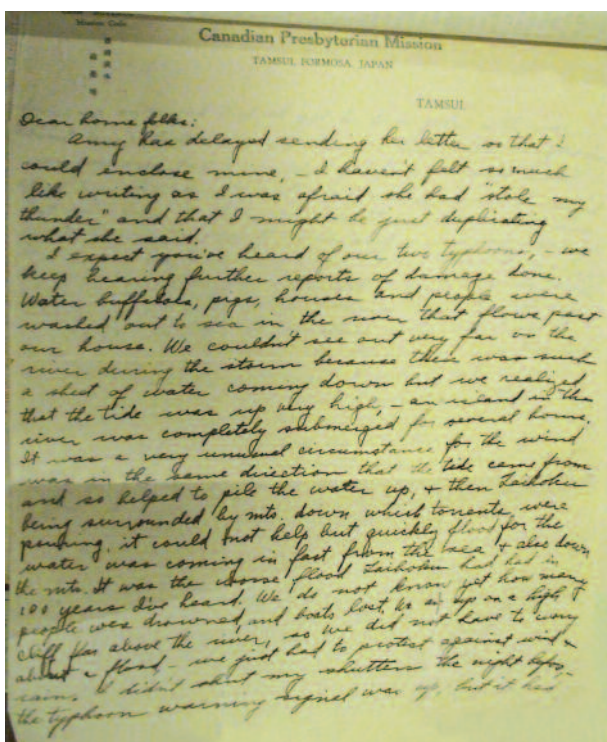 Canadian Presbyterian Mission
TAMSUI, FORMOSA, JAPAN
TAMSUI
Dear home folks:
Amy has delayed sending her letter so that I
could enclose mine, - I haven't felt so much
like writing as I was afraid she had "stole my
thunder" and that I might be just duplicating
what she said.
I expect you've heard of our two typhoons, - we
keep hearing further reports of damage done.
Water buffaloes, pigs, houses and people were
washed out to sea in the river that flows past
our house. We couldn't see out very far on the
river during the storm because there was such
a sheet of water coming down but we realized
that the tide was up very high, - an island in the
river was completely submerged for several hours.
It was a very unusual circumstance for the wind
was in the same direction that the tide came from
and so helped to pile the water up, + then Taihoku
being surrounded by mts. down which torrents were
pouring, it could not help but quickly flood for the
water was coming in fast from the sea + also down
the mts. It was the worse flood Taihoku had had in
100 years I've heard. We do not know yet how many
people was drowned, and boats lost. up on a high
cliff far above the river, so we did not have to worry
about a flood - we just had to protect against wind +
rain. I didn't shut my shutters the night before,
the typhoon warning signal was up, but it had